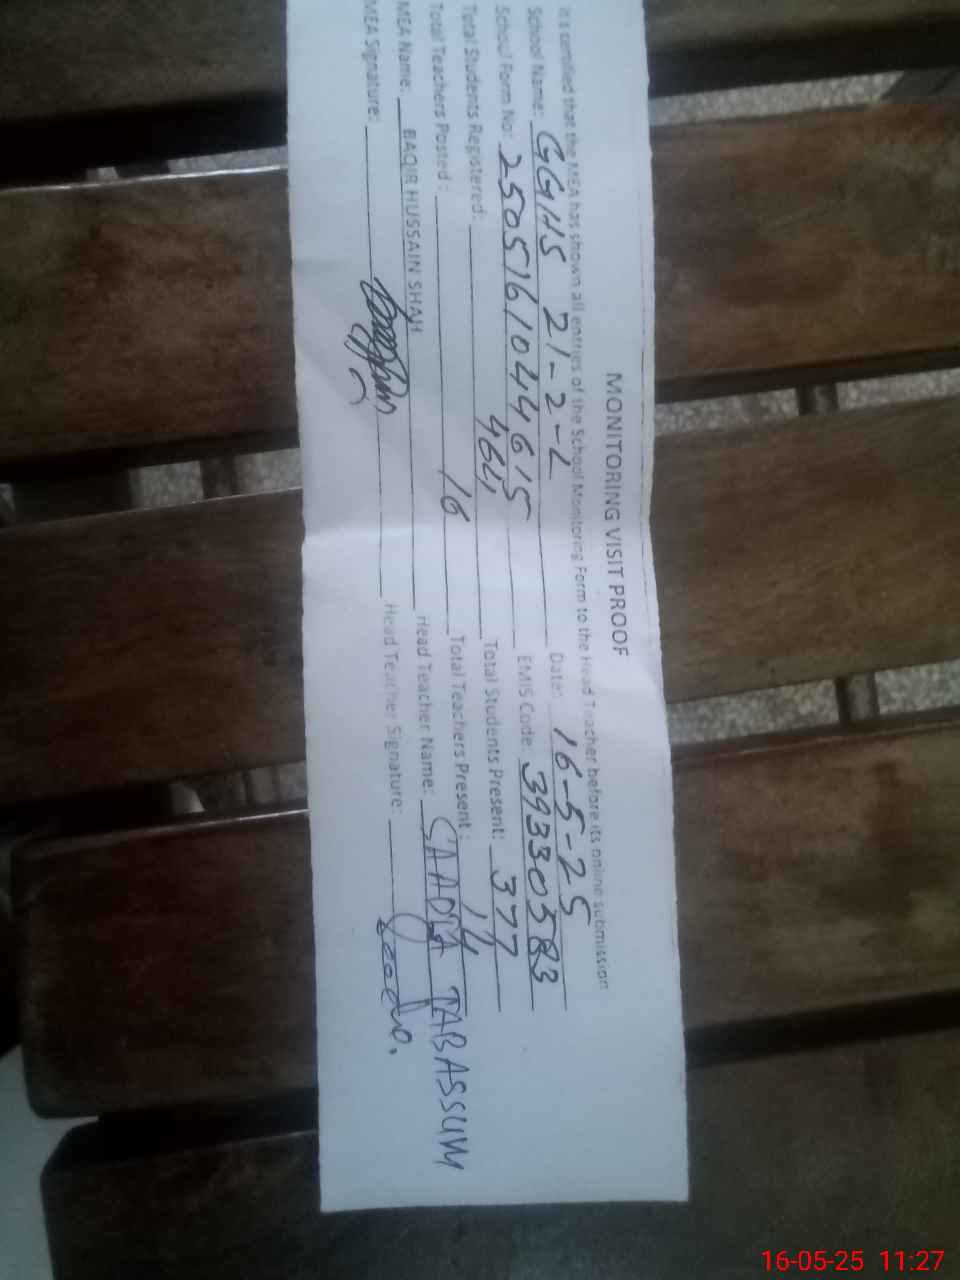 MONITORING VISIT PROOF
It is certified that the MEA has shown all entries of the School Monitoring Form to the Head Teacher before its online submission
School Name: GGHS 21-2-L Date: 16-5-25
School Form No: 25051610444615 EMIS Code: 39330583
Total Students Registered: 464 Total Students Present: 377
Total Teachers Posted : 16 Total Teachers Present : 14
MEA Name: BAQIR HUSSAIN SHAH Head Teacher Name: SAADIA TABASSUM
MEA Signature: Head Teacher Signature:
16-05-25 11:27